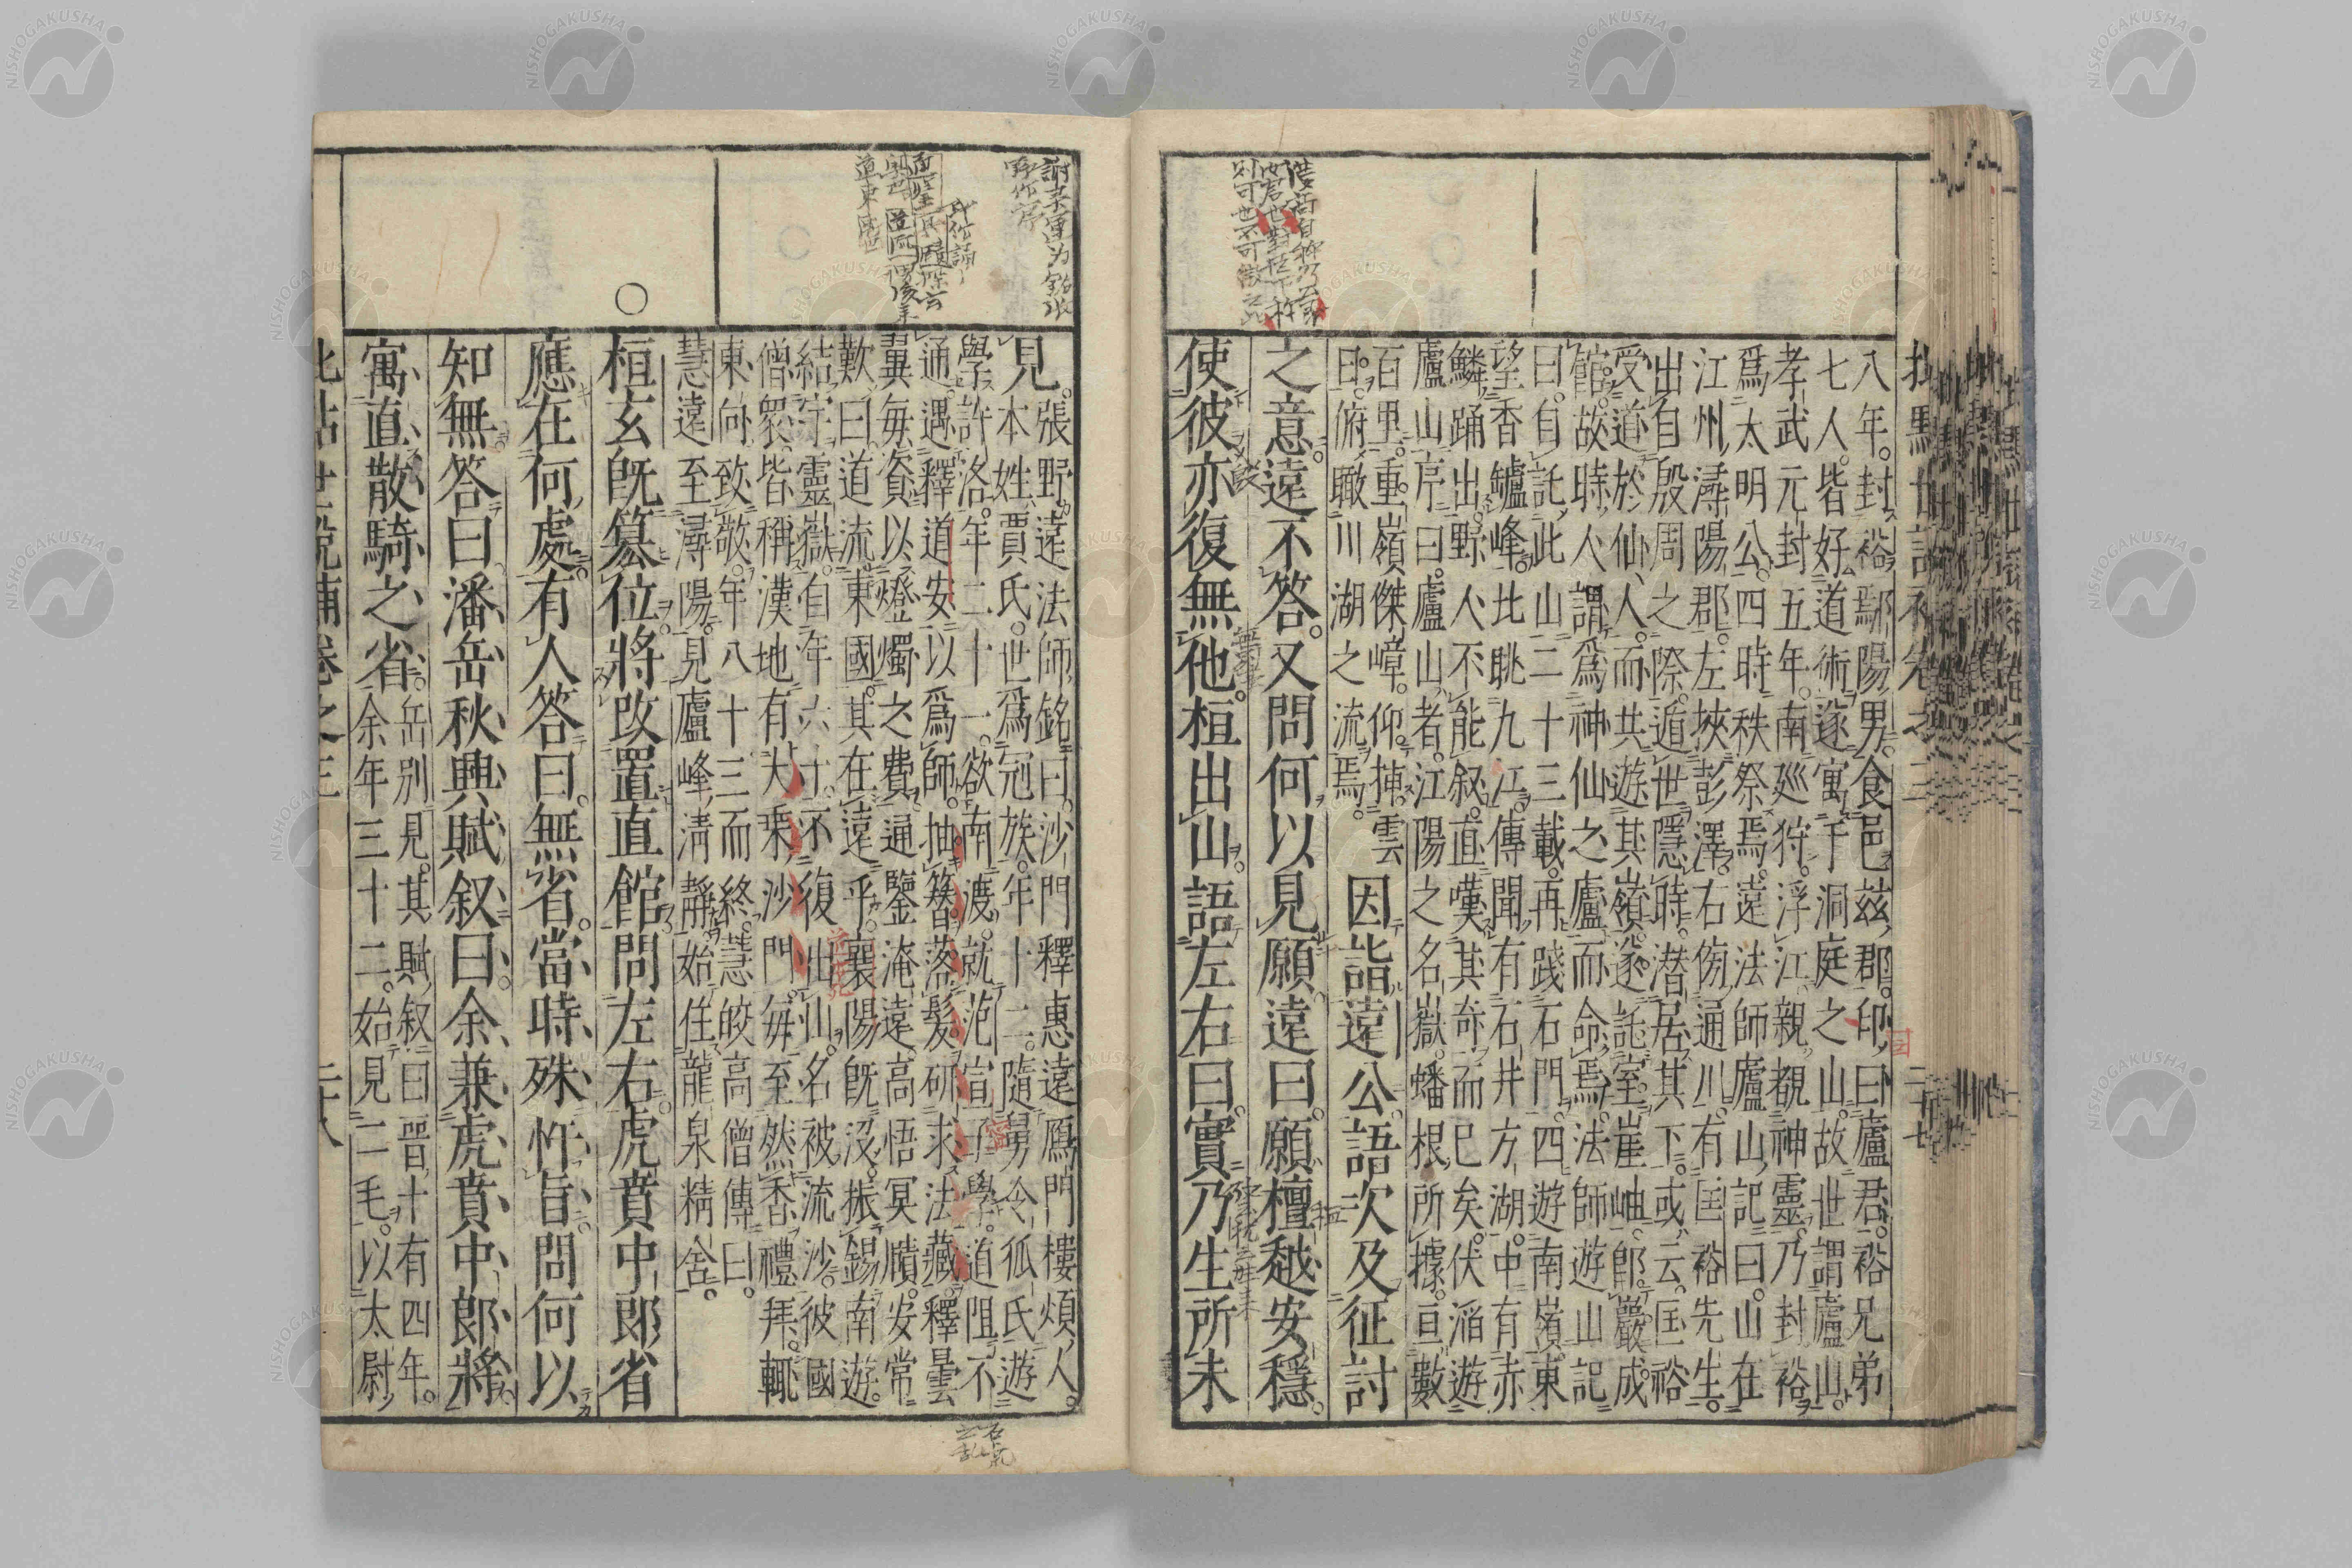 八年。封裕鄢陽男。食邑茲郡。印曰廬君。裕兄弟
七人。皆好道術。遂寓于洞庭之山。故世謂廬山。
孝武元封五年。南廵狩。浮江。親覩神靈。乃封裕
爲太明公。四時秩祭焉。遠法師廬山記曰。山在
江州潯陽郡。左挾彭澤。右傍通川。有匡裕先生。
出自殷周之際。遁世隱時。潜居其下。或云。匡裕
受道於仙人。而共遊其嶺。遂託室崖岫。即巖成
館。故時人謂爲神仙之廬而命焉。法師遊山記
曰。自託此山二十三載。再踐石門。四遊南嶺。東
望香鑪峰。北眺九江。傳聞有石井方湖。中有赤
鱗踊出。野人不能叙。直嘆其奇而已矣。伏滔遊
廬山序曰。廬山者。江陽之名嶽。蟠根所據。亘數
百里。重嶺傑嶂。仰插雲
日。俯瞰川湖之流焉。因詣遠公。語次及征討
之意。遠不答。又問何以見願。遠曰。願檀越安穩。
使彼亦復無他。桓出山。語左右曰。實乃生所未
見。張野遠法師銘曰。沙門釋惠遠。鴈門樓煩人。
本姓賈氏。世爲冠族。年十二。隨舅令狐氏遊
學許洛。年二十一。欲南渡。就范宣子學。道阻不
通。遇釋道安以爲師。抽簪落髮。研求法藏。釋曇
翼毎資以燈燭之費。通鑒淹遠。高悟冥賾。安常
歎曰。道流東國。其在遠乎。襄陽既沒。振錫南遊。
結宇靈嶽。自年六十。不復出山。名被流沙。彼國
僧衆。皆稱漢地有大乗沙門。毎至然香禮拜。輙
東向致敬。年八十三而終。慧皎高僧傳曰。
慧遠至潯陽。見廬峰清靜。始住龍泉精舍。
○
桓玄既簒位。將改置直館。問左右。虎賁中郎省
應在何處。有人答曰。無省。當時殊忤旨。問何以
知無。答曰。潘岳秋興賦叙曰。余兼虎賁中郎將
寓直散騎之省。岳別見。其賦叙曰。晋十有四年。
余年三十二。始見二毛。以太尉